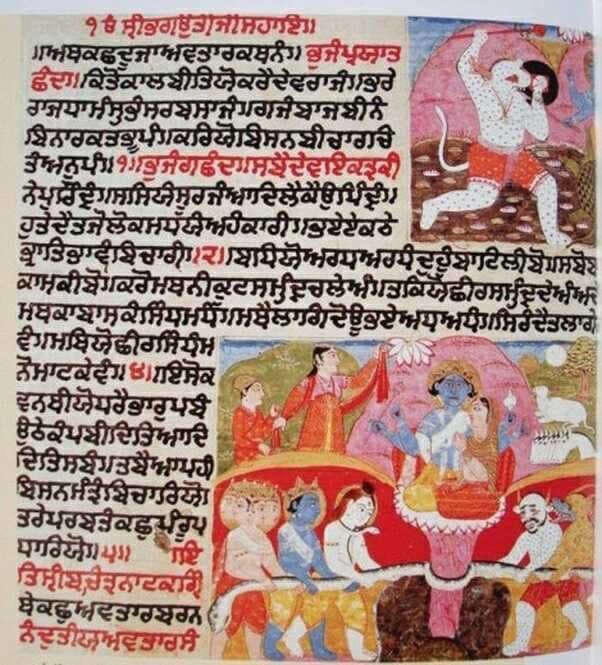 ੧ ੴ ਸ੍ਰੀਭਗਉਤੀਜੀਸਹਾਇ॥
॥ਅਥਕਛਦੂਜਾਅਵਤਾਰਕਥਨੰ॥ ਭੁਜੰਪ੍ਰਯਾਤ
ਛੰਦ॥ਕਿਤੋਕਾਲਬੀਤਿਯੋਕਰੈਦੇਵਰਾਜੰ॥ਭਰੇ
ਰਾਜਧਾਮੰਸੁਭੰਸਰਬਸਾਜੰ॥ਗਜੰਬਾਜਬੀਨੰ
ਬਿਨਾਰਤਨਭੂਪੰ॥ਕਰਿਯੋਬਿਸਨਬੀਚਾਰਚਿ
ਤੰਅਨੂਪੰ॥੧॥ਭੁਜੰਗਛੰਦ॥ਸਬੈਦੇਵਇਕਤ੍ਰਕੀ
ਨੇਪੁਰਿੰਦ੍ਰੰ॥ਸਸਿਯੰਸੂਰਜੰਆਦਿਲੈਕੈਉਪਿੰਦ੍ਰੰ॥
ਹੁਤੇਦੈਤਜੇਲੋਕਮਧਯੰਅਹੰਕਾਰੀ॥ਭਏਏਕਠੇ
ਭ੍ਰਾਤਿਭਾਵੰਬਿਚਾਰੀ॥੨॥ਬਧਿਯੋਅਰਧਅਰਧੰਦੁਹੂੰਬਾਟਿਲੀਬੋ॥ਸਬੋਬ
ਕਾਮਕੀਬੋ॥ਕਰੋਮਥਨੀਕੂਟ
ਮਥਕਾਬਾਸਕੰਸਿੰਧਮਧੰ॥ਮਥੈਲਾਗਿਦੋਊਭਏਅਧਅਧੰ॥ਸਿਰੰਦੈਤਲਾਗੇ
ਵੰ॥ਮਥਿਯੋਛੀਰਸਿੰਧੰਮ
ਨੋਮਾਟਕੇਵੰ॥੪॥ਇਸੋਕ
ਵਨਬੀਯੋਧਰੈਭਾਰੁਪਬੰ
ਉਠੇਕੰਪਬੀਦਿਤਿਆਦਿ
ਦਿਤਿਸਬੰ॥ਤਬੈਆਪਹੀ
ਬਿਸਨਮੰਤ੍ਰੰਬਿਚਾਰਿਯੋ
ਤਰੇਪਰਬਤੰਕਛੁਪੰਰੂਪ
ਧਾਰਿਯੋ॥੫॥ ਇ
ਤਿਸ੍ਰੀਬਚਿਤ੍ਰਨਾਟਕਗ੍ਰੰ
ਥੇਕਛੁਅਵਤਾਰਬਰਨ
ਨੰਦੁਤੀਯਅਵਤਾਰਸੰ